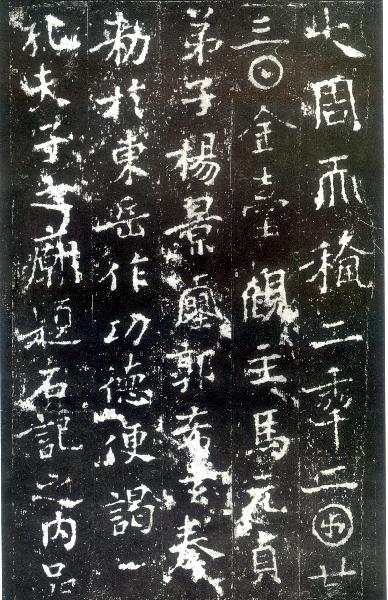 大周𠀑𥠢二𠡦二𠥱廿
三𡆠金臺觀主馬元貞
弟子楊景𡔈郭希玄奉
勅於東岳作功德便謁
孔夫子之廟題石記之內品